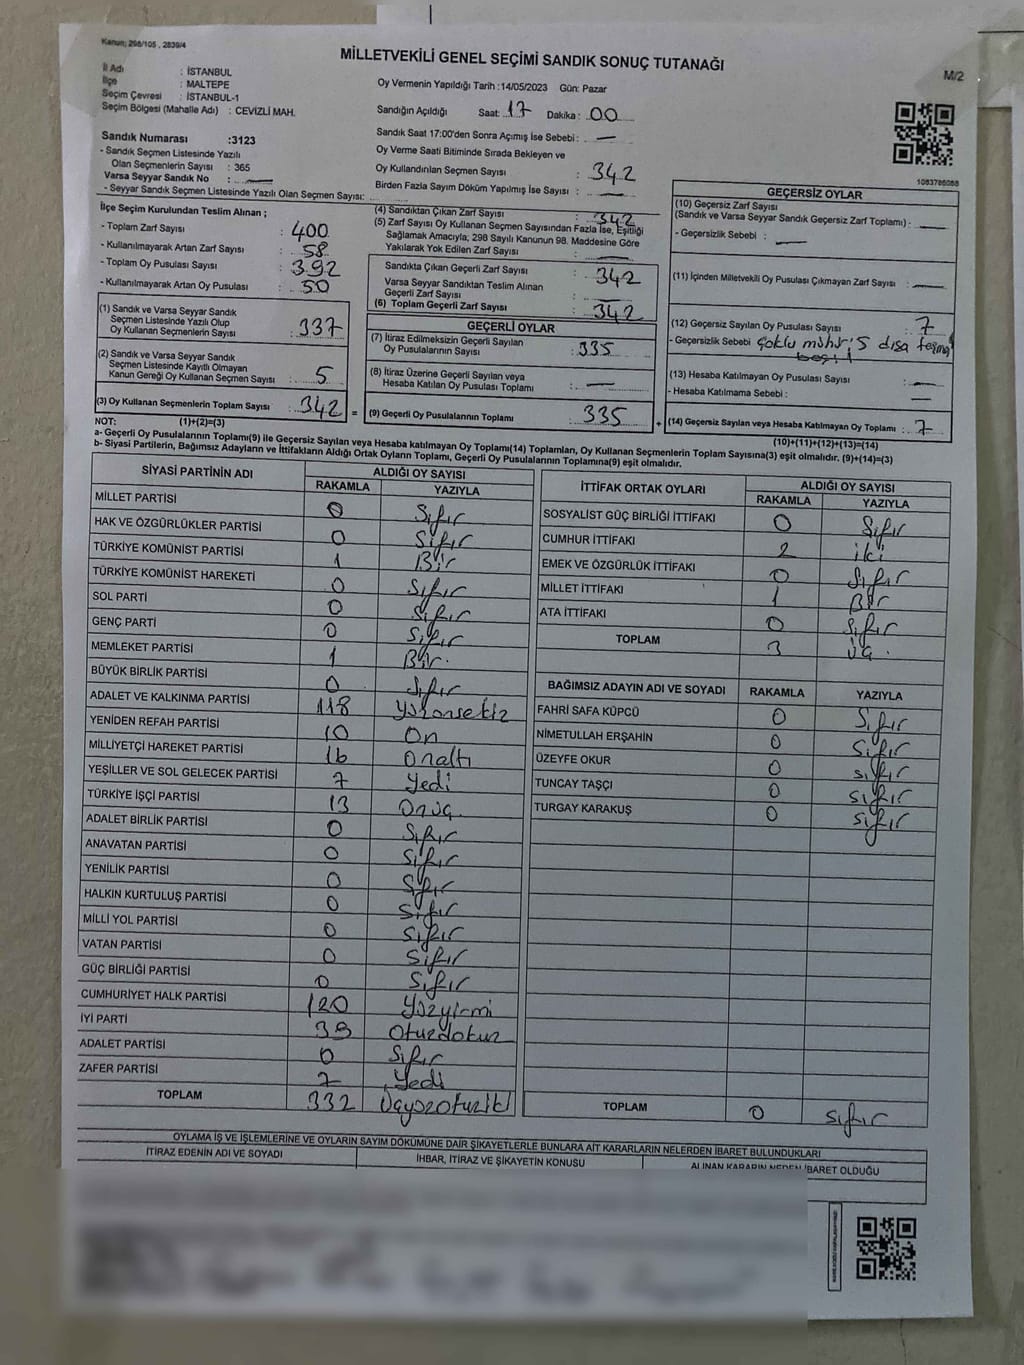 Kanun; 298/105 , 2839/4
MİLLETVEKİLİ GENEL SEÇİMİ SANDIK SONUÇ TUTANAĞI
M/2
İl Adı : İSTANBUL
İlçe : MALTEPE
Seçim Çevresi : İSTANBUL-1
Seçim Bölgesi (Mahalle Adı) : CEVİZLİ MAH.
Oy Vermenin Yapıldığı Tarih :14/05/2023 Gün: Pazar
Sandığın Açıldığı Saat: 17 Dakika: 00
Sandık Saat 17:00'den Sonra Açımış İse Sebebi : —
Oy Verme Saati Bitiminde Sırada Bekleyen ve
Oy Kullandırılan Seçmen Sayısı : 342
Birden Fazla Sayım Döküm Yapılmış İse Sayısı : —
Sandık Numarası :3123
- Sandık Seçmen Listesinde Yazılı
Olan Seçmenlerin Sayısı : 365
Varsa Seyyar Sandık No : —
- Seyyar Sandık Seçmen Listesinde Yazılı Olan Seçmen Sayısı:
1083786088
İlçe Seçim Kurulundan Teslim Alınan ;
- Toplam Zarf Sayısı : 400
- Kullanılmayarak Artan Zarf Sayısı : 58
- Toplam Oy Pusulası Sayısı : 392
- Kullanılmayarak Artan Oy Pusulası : 50
(1) Sandık ve Varsa Seyyar Sandık
Seçmen Listesinde Yazılı Olup
Oy Kullanan Seçmenlerin Sayısı : 337
(2) Sandık ve Varsa Seyyar Sandık
Seçmen Listesinde Kayıtlı Olmayan
Kanun Gereği Oy Kullanan Seçmen Sayısı : 5
(3) Oy Kullanan Seçmenlerin Toplam Sayısı : 342 =
(4) Sandıktan Çıkan Zarf Sayısı : 342
(5) Zarf Sayısı Oy Kullanan Seçmen Sayısından Fazla İse, Eşitliği
Sağlamak Amacıyla, 298 Sayılı Kanunun 98. Maddesine Göre
Yakılarak Yok Edilen Zarf Sayısı : —
Sandıkta Çıkan Geçerli Zarf Sayısı : 342
Varsa Seyyar Sandıktan Teslim Alınan
Geçerli Zarf Sayısı : —
(6) Toplam Geçerli Zarf Sayısı : 342
GEÇERLİ OYLAR
(7) İtiraz Edilmeksizin Geçerli Sayılan
Oy Pusulalarının Sayısı : 335
(8) İtiraz Üzerine Geçerli Sayılan veya
Hesaba Katılan Oy Pusulası Toplamı : —
(9) Geçerli Oy Pusulalarının Toplamı : 335 +
GEÇERSİZ OYLAR
(10) Geçersiz Zarf Sayısı
(Sandık ve Varsa Seyyar Sandık Geçersiz Zarf Toplamı) - —
- Geçersizlik Sebebi : —
(11) İçinden Milletvekili Oy Pusulası Çıkmayan Zarf Sayısı : —
(12) Geçersiz Sayılan Oy Pusulası Sayısı : 7
- Geçersizlik Sebebi
(13) Hesaba Katılmayan Oy Pusulası Sayısı : —
- Hesaba Katılmama Sebebi : —
(14) Geçersiz Sayılan veya Hesaba Katılmayan Oy Toplamı : 7
NOT: (1)+(2)=(3) (10)+(11)+(12)+(13)=(14)
a- Geçerli Oy Pusulalarının Toplamı(9) ile Geçersiz Sayılan veya Hesaba katılmayan Oy Toplamı(14) Toplamları, Oy Kullanan Seçmenlerin Toplam Sayısına(3) eşit olmalıdır. (9)+(14)=(3)
b- Siyasi Partilerin, Bağımsız Adayların ve İttifakların Aldığı Ortak Oyların Toplamı, Geçerli Oy Pusulalarının Toplamına(9) eşit olmalıdır.
SİYASİ PARTİNİN ADI ALDIĞI OY SAYISI
RAKAMLA YAZIYLA
MİLLET PARTİSİ 0 Sıfır
HAK VE ÖZGÜRLÜKLER PARTİSİ 0 Sıfır
TÜRKİYE KOMÜNİST PARTİSİ 1 Bir
TÜRKİYE KOMÜNİST HAREKETİ 0 Sıfır
SOL PARTİ 0 Sıfır
GENÇ PARTİ 0 Sıfır
MEMLEKET PARTİSİ 1 Bir.
BÜYÜK BİRLİK PARTİSİ 0 Sıfır
ADALET VE KALKINMA PARTİSİ 118 Yüzonsekiz
YENİDEN REFAH PARTİSİ 10 On
MİLLİYETÇİ HAREKET PARTİSİ 16 Onaltı
YEŞİLLER VE SOL GELECEK PARTİSİ 7 Yedi
TÜRKİYE İŞÇİ PARTİSİ 13 Onüç.
ADALET BİRLİK PARTİSİ 0 Sıfır
ANAVATAN PARTİSİ 0 Sıfır
YENİLİK PARTİSİ 0 Sıfır
HALKIN KURTULUŞ PARTİSİ 0 Sıfır
MİLLİ YOL PARTİSİ 0 Sıfır
VATAN PARTİSİ 0 Sıfır
GÜÇ BİRLİĞİ PARTİSİ 0 Sıfır
CUMHURİYET HALK PARTİSİ 120 Yüzyirmi
İYİ PARTİ 39 Otuzdokuz
ADALET PARTİSİ 0 Sıfır
ZAFER PARTİSİ 7 Yedi
TOPLAM 332 Üçyüzotuziki
İTTİFAK ORTAK OYLARI ALDIĞI OY SAYISI
RAKAMLA YAZIYLA
SOSYALİST GÜÇ BİRLİĞİ İTTİFAKI 0 Sıfır
CUMHUR İTTİFAKI 2 iki
EMEK VE ÖZGÜRLÜK İTTİFAKI 0 Sıfır
MİLLET İTTİFAKI 1 Bir
ATA İTTİFAKI 0 Sıfır
TOPLAM 3 üç.
BAĞIMSIZ ADAYIN ADI VE SOYADI RAKAMLA YAZIYLA
FAHRİ SAFA KÜPCÜ 0 Sıfır
NİMETULLAH ERŞAHİN 0 Sıfır
ÜZEYFE OKUR 0 sıfır
TUNCAY TAŞÇI 0 sıfır
TURGAY KARAKUŞ 0 sıfır
TOPLAM 0 sıfır
OYLAMA İŞ VE İŞLEMLERİNE VE OYLARIN SAYIM DÖKÜMÜNE DAİR ŞİKAYETLERLE BUNLARA AİT KARARLARIN NELERDEN İBARET BULUNDUKLARI
İTİRAZ EDENİN ADI VE SOYADI İHBAR, İTİRAZ VE ŞİKAYETİN KONUSU ALINAN KARARIN NEDEN İBARET OLDUĞU